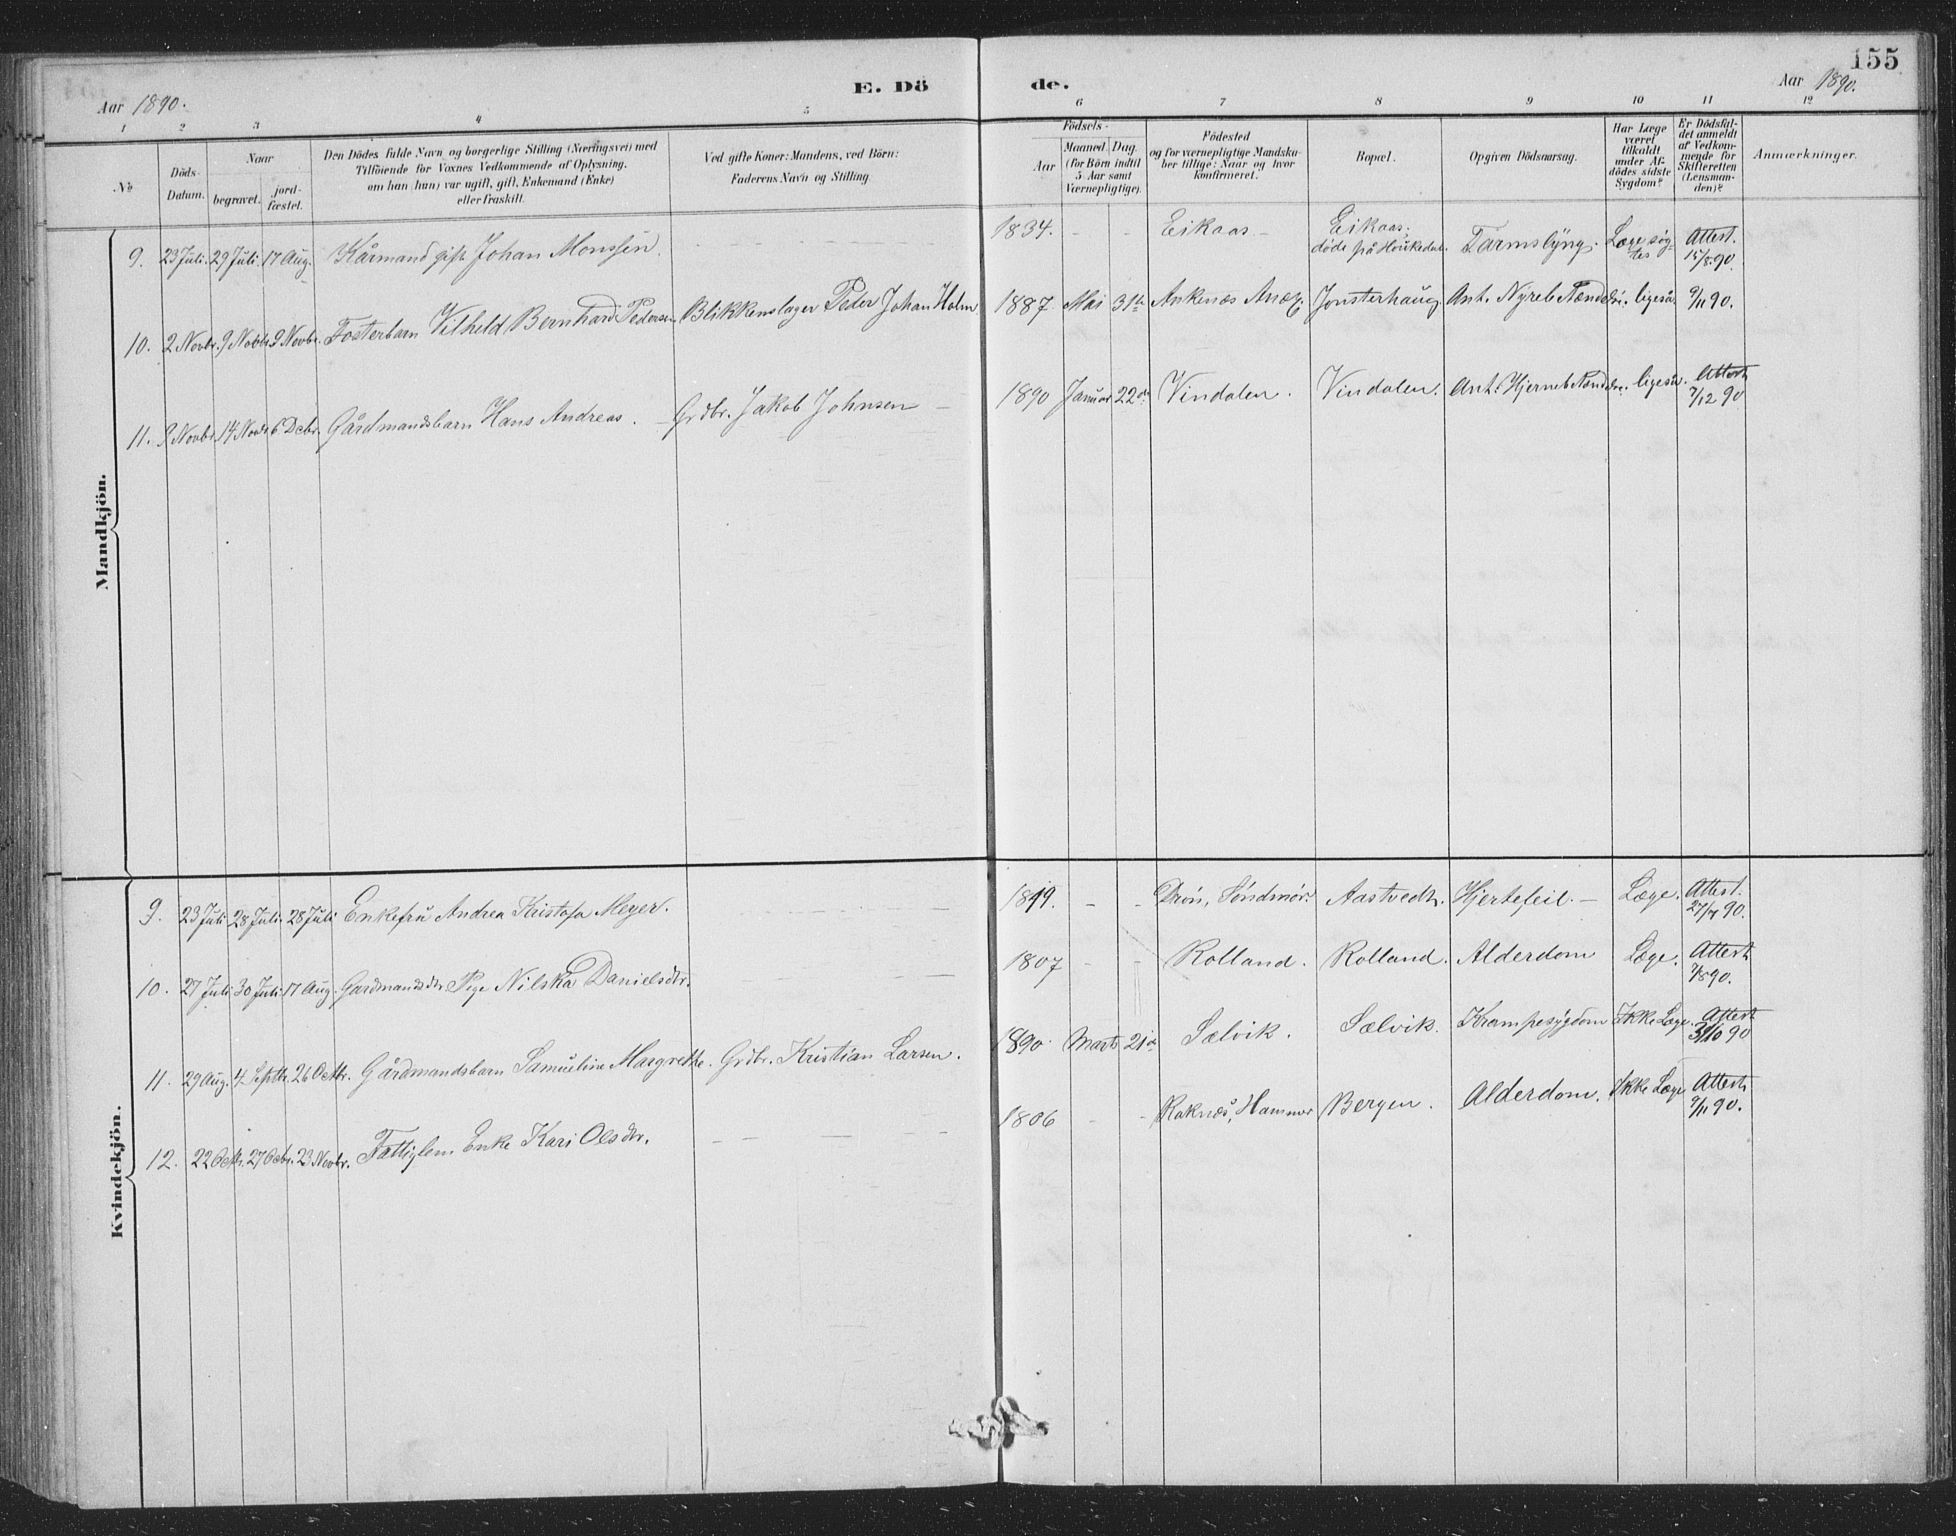 155
Aar 1890. E. Dö de. Aar 1890.
1 2 3 4 5 6 7 8 9 10 11 12
No
Döds-Datum.
Naar
begravet.
jord-fæstet.
Den Dödes fulde Navn og borgerlige Stilling (Næringsvei) med
Tilföiende for Voxnes Vedkommende af Oplysning.
om han (hun) var ugift, gift, Enkemand (Enke)
eller fraskilt.
Ved gifte Koner: Mandens, ved Börn:
Faderens Navn og Stilling.
Födsels-
Aar
Maaned. Dag.
(for Börn indtil
5 Aar samt
Værnepligtige).
Födested
og for værnepligtige Mandska-
ber tillige: Naar og hvor
konfirmeret.
Bopæl.
Opgiven Dödsaarsag.
Har Læge
været
tilkaldt
under Af-
dödes sidste
Sygdom?
Er Dödsfal-
det anmeldt
af Vedkom-
mende for
Skifteretten
(Lensman-
den)?
Anmærkninger.
Mandkjön.
9. 23 Juli. 29 Juli. 17 Aug. Kårmand gift Johan Monssen. 1834. - - Eikaas - Eikaas; döde på Houkedal. Læge søg-tes Attest. 15/8 90.
10. 2 Novbr. 9 Novbr. 9 Novbr. Fosterbarn Vilheld Bernhard Pedersen Blikkenslager Peder Johan Holm 1887 Mai 31te Ankenæs Anæx Jonsterhaug Ant. Nyreb ligeså 9/11 90.
11. 9 Novbr. 14 Novbr. 6 Decbr. Gårdmandsbarn Hans Andreas. - Grdbr. Jakob Johnsen - 1890 Januar 22de Vindalen. Vindalen. Ant. Hjerneb ligeså. Attest 7/12 90
Kvindekjön.
9. 23 Juli 28 Juli. 28 Juli Enkefru Andrea Kristofa Meyer. 1819. - - Söndmør. Aastvedt. Hjertefeil. - Læge. Attest. 27/7 90.
10. 27 Juli. 30 Juli. 17 Aug. Gårdmandsdtr. Pige Nilska Danielsdtr. 1807 - - Rolland. Rolland. Alderdom Læge. Attest 7/8 90.
11. 29 Aug. 4 Septbr. 26 Octbr. Gårdmandsbarn Samueline Margrethe. Grdbr. Kristian Larsen. 1890. Marts 21de Sælvik. Sælvik. Krampesygdom Ikke Læge. Attest 31/10 90
12. 22 Octbr. 27 Octbr. 23 Novbr. Fattiglem Enke Kari Olsdtr. 1806 - - Raknæs, Hammer Bergen. Alderdom. Ikke Læge Attest 9/11 90.